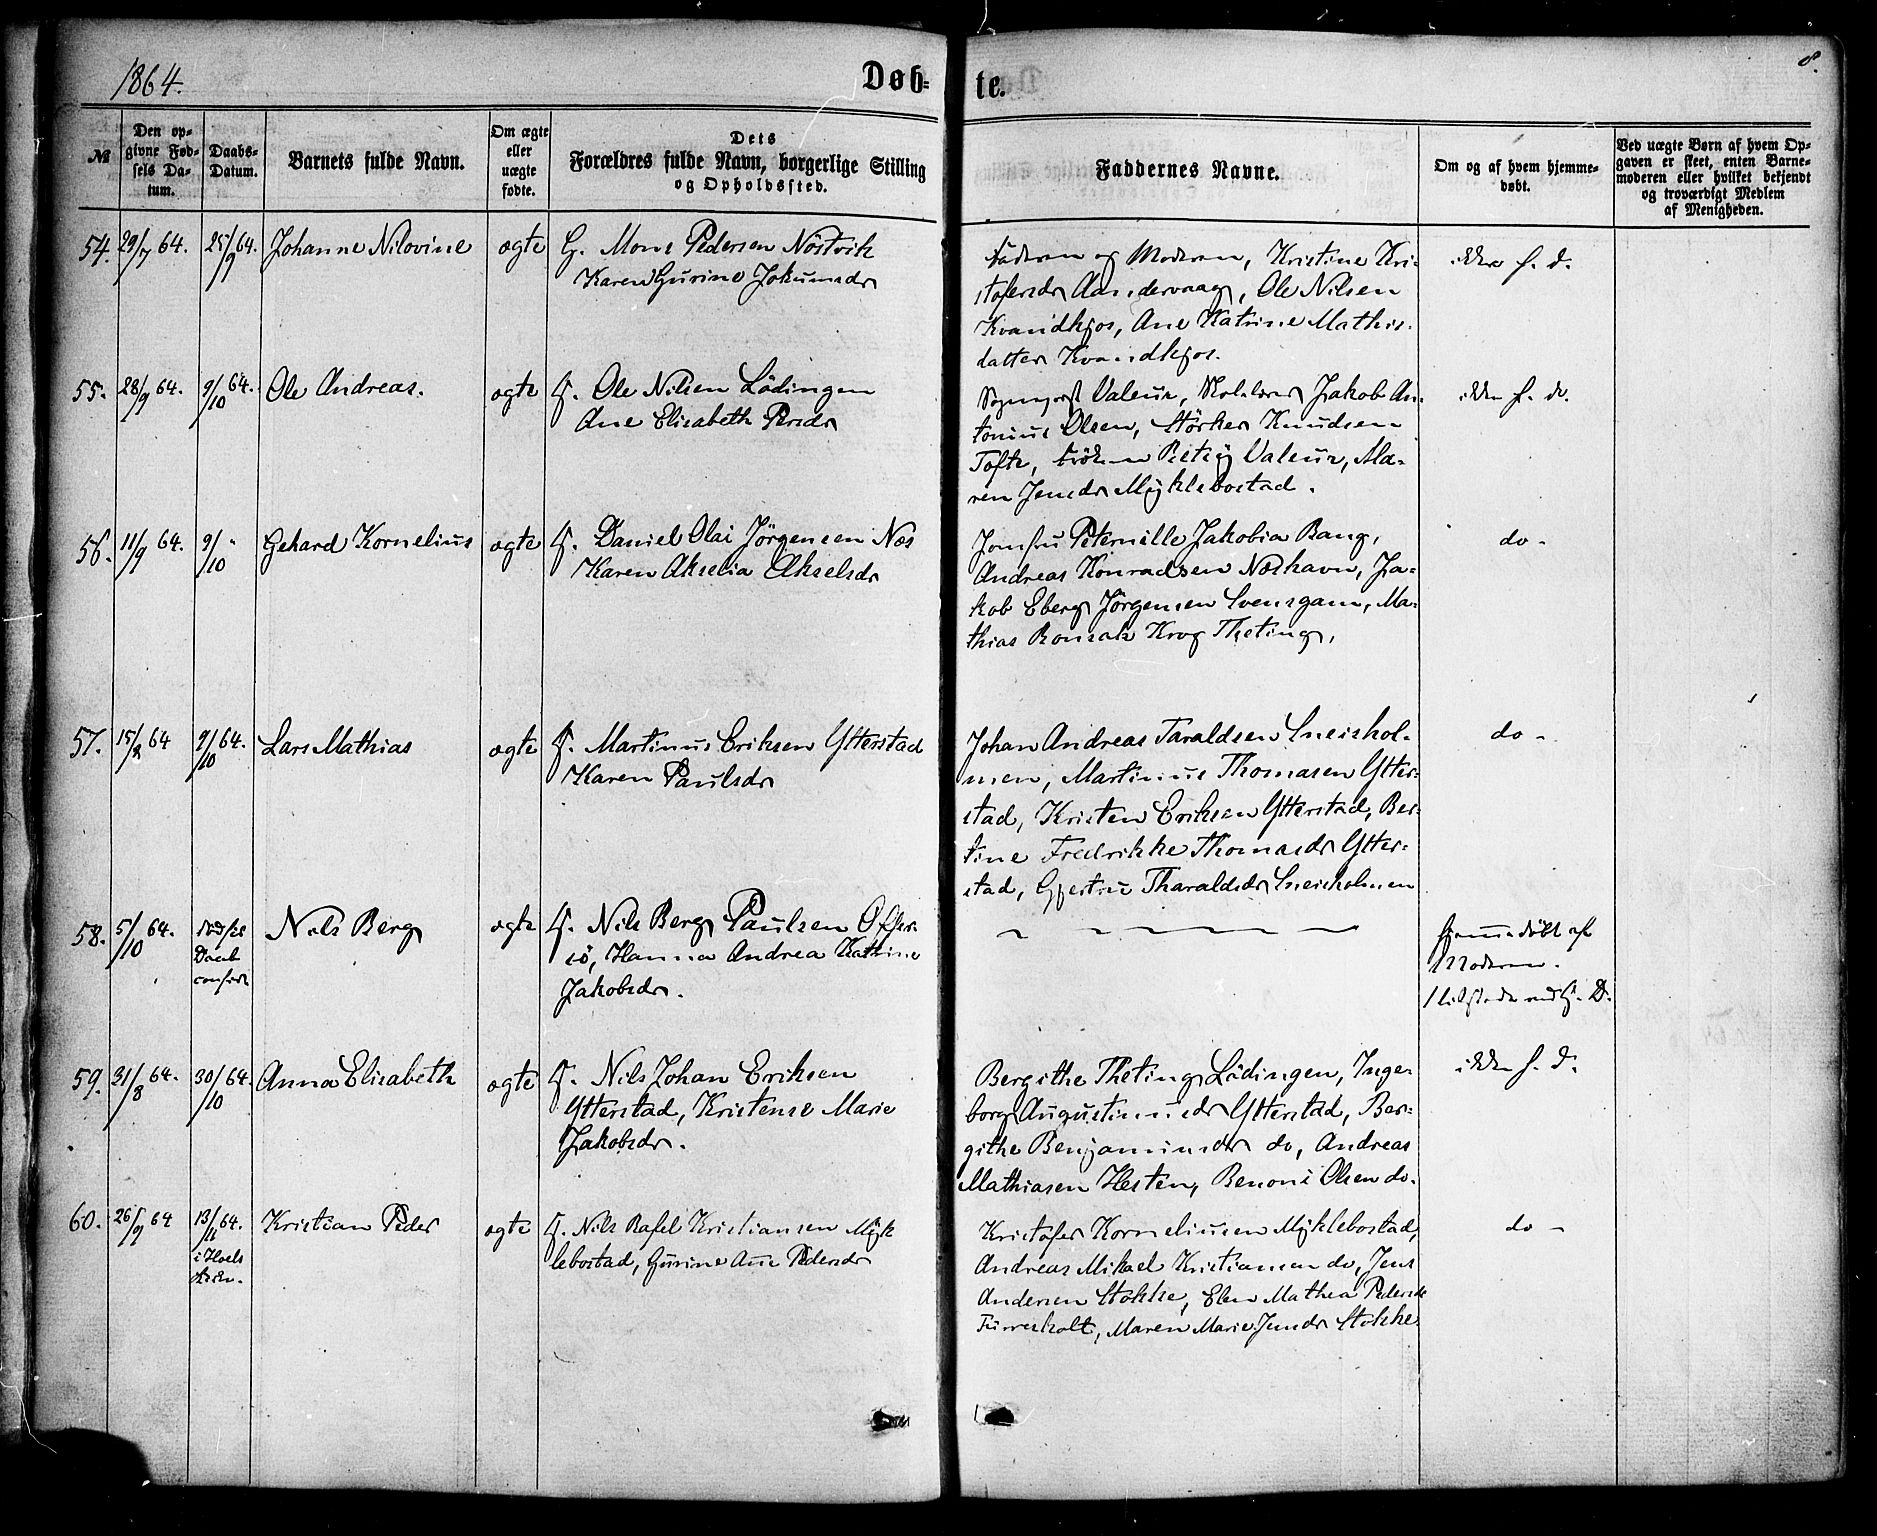 1864.
Døb-
te.
8.
№
Den op-
givne Fød-
sels Da-
tum.
Daabs-
Datum.
Barnets fulde Navn.
Om ægte
eller
uægte
fødte.
Dets
Forældres fulde Navn, borgerlige Stilling
og Opholdssted.
Faddernes Navne.
Om og af hvem hjemme-
døbt.
Ved uægte Børn af hvem Op-
gaven er skeet, enten Barne-
moderen eller hvilket bekjendt
og troværdigt Medlem
af Menigheden.
54. 29/7 64. 25/9 64. Johanne Nilovine ægte G. Mons Pedersen Nöstvik
Karen Gurine Jokumsdr
Faderen og Moderen, Kristine Kri-
stofersdr Aandervaag, Ole Nilsen
Kvandkjos, Ane Katrine Mathis-
datter Kvandkjos.
ikke h. d.
55. 28/9 64. 9/10 64. Ole Andreas. ægte F. Ole Nilsen Lödingen
Ane Elisabeth Persdr
Sognepræst Valeur, Jakob An-
tonius Olsen, Störker Knudsen
Tofte, fröken Petrÿ Valeur, Ma-
ren Jensdr Mÿklebostad.
ikke h. d.
56. 11/9 64. 9/10 " Gehard Kornelius ægte F. Daniel Olai Jörgensen Næs
Karen Akselia Akselsdr
Jomfru Peternille Jakobia Bang,
Andreas Konradsen Næshavn, Ja-
kob Eberg Jörgensen Svensgam, Ma-
thias Bonsak Krog Theting,
do -
57. 15/8 64 9/10 64. Lars Mathias ægte F. Martinus Eriksen Ytterstad
Karen Paulsdr
Johan Andreas Taraldsen Sneishol-
men, Martinus Thomasen Ytter-
stad, Kristen Eriksen Ytterstad, Ber-
tine Fredrikke Thomasdr Ytter-
stad, Gjertru Tharaldsdr Sneisholmen
do -
58. 5/10 64. Nils Berg ægte F. Nils Berg Paulsen Offer-
sö, Hanna Andrea Kathrine
Jakobsdr.
Daab
hjemmedöbt af
Moderen.
59. 31/8 64. 30/10 64. Anna Elisabeth ægte F. Nils Johan Eriksen
Ytterstad, Kristense Marie
Jakobsdr.
Bergithe Theting Lödingen, Inge-
borg Augustinusdr Ytterstad, Ber-
githe Benjaminsdr do, Andreas
Mathiasen Hesten, Benoni Olsen do.
ikke h. d.
60. 26/9 64 13/11 64. Kristian Peder ægte F. Nils Rafel Kristiansen Mÿk
i Hoels
Kirke.
lebostad, Gurine Ane Pedersdr
Kristofer Korneliussen Mÿklebostad,
Andreas Mikael Kristiansen do, Jens
Andersen Stokke, Elen Mathea Pedersdr
Furreholt, Maren Marie Jensdr Stokke
do -